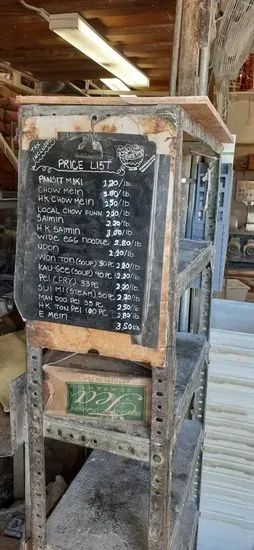 TAX
INCLUDED
PRICE LIST
PANSIT MIKI 2.20/lb.
CHOW MEIN 2.20/lb.
HK CHOW MEIN 2.50/lb.
LOCAL CHOW FUNN 2.20/lb.
SAIMIN 2.20/lb.
HK SAIMIN 2.80/lb.
WIDE EGG NOODLE 2.80/lb.
UDON 2.20/lb.
WON TON (SOUP) 50 PC 2.20/lb.
KAU GEE (SOUP) 40 PC 2.20/lb.
PEI (FRY) 33 PC 2.20/lb.
SUI MI (STEAM) 50 PC 2.20/lb.
MAN DOO PEI 35 PC 2.50/lb.
HK TON PEI 100 PC 2.80/lb.
E MEIN 3.50 EA
Tea